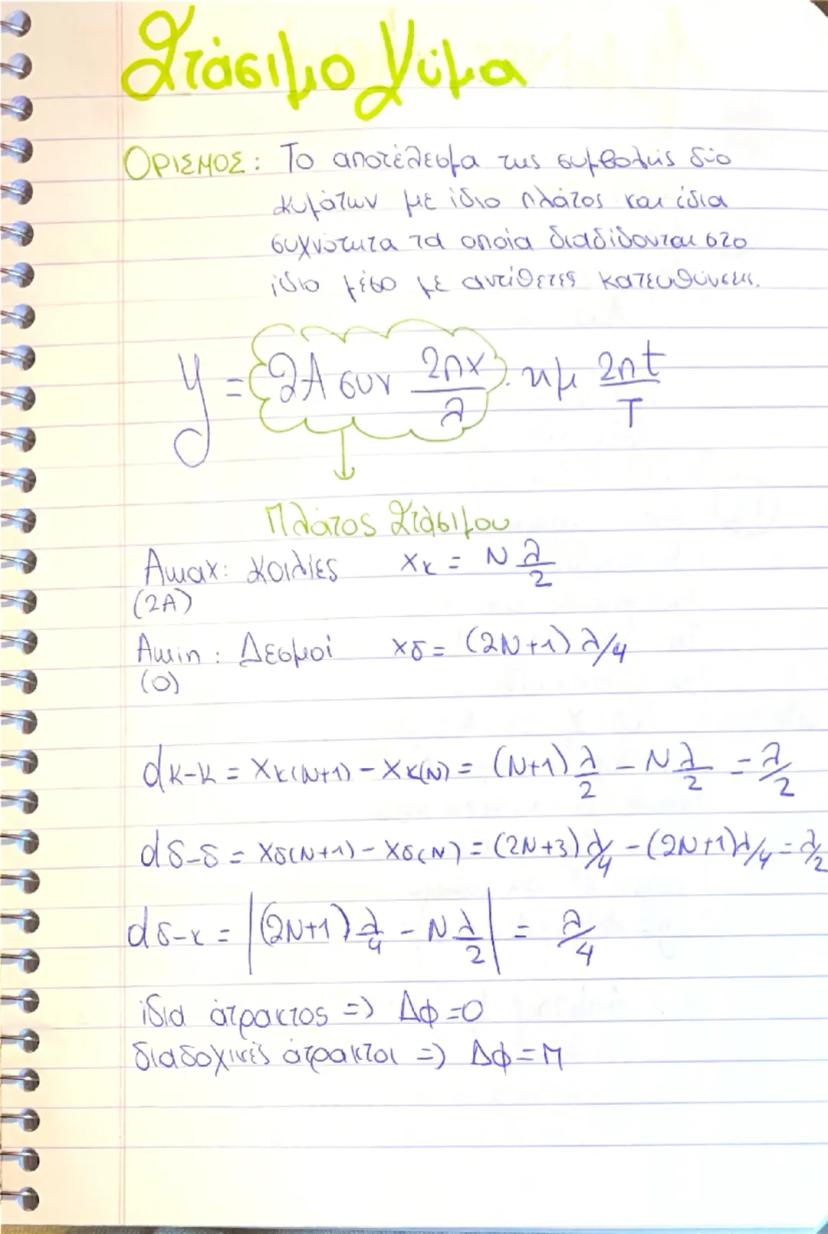 Στάσιμο Κύμα
ΟΡΙΣΜΟΣ: Το αποτέλεσμα της συμβολής δύο
κυμάτων με ίδιο πλάτος και ίδια
συχνότητα τα οποία διαδίδονται στο
ίδιο μέσο με αντίθετες κατευθύνσεις.
y = 2Α συν 2πx/λ · ημ 2πt/T
Πλάτος Στάσιμου
Amax: Κοιλίες xκ = N λ/2
(2A)
Amin: Δεσμοί xδ = (2N+1) λ/4
(0)
dκ-κ = xκ(N+1) - xκ(N) = (N+1) λ/2 - N λ/2 = λ/2
dδ-δ = xδ(N+1) - xδ(N) = (2N+3) λ/4 - (2N+1) λ/4 = λ/2
dδ-κ = |(2N+1) λ/4 - N λ/2| = λ/4
ίδια άτρακτος => Δφ=0
διαδοχικές άτρακτοι => Δφ=π